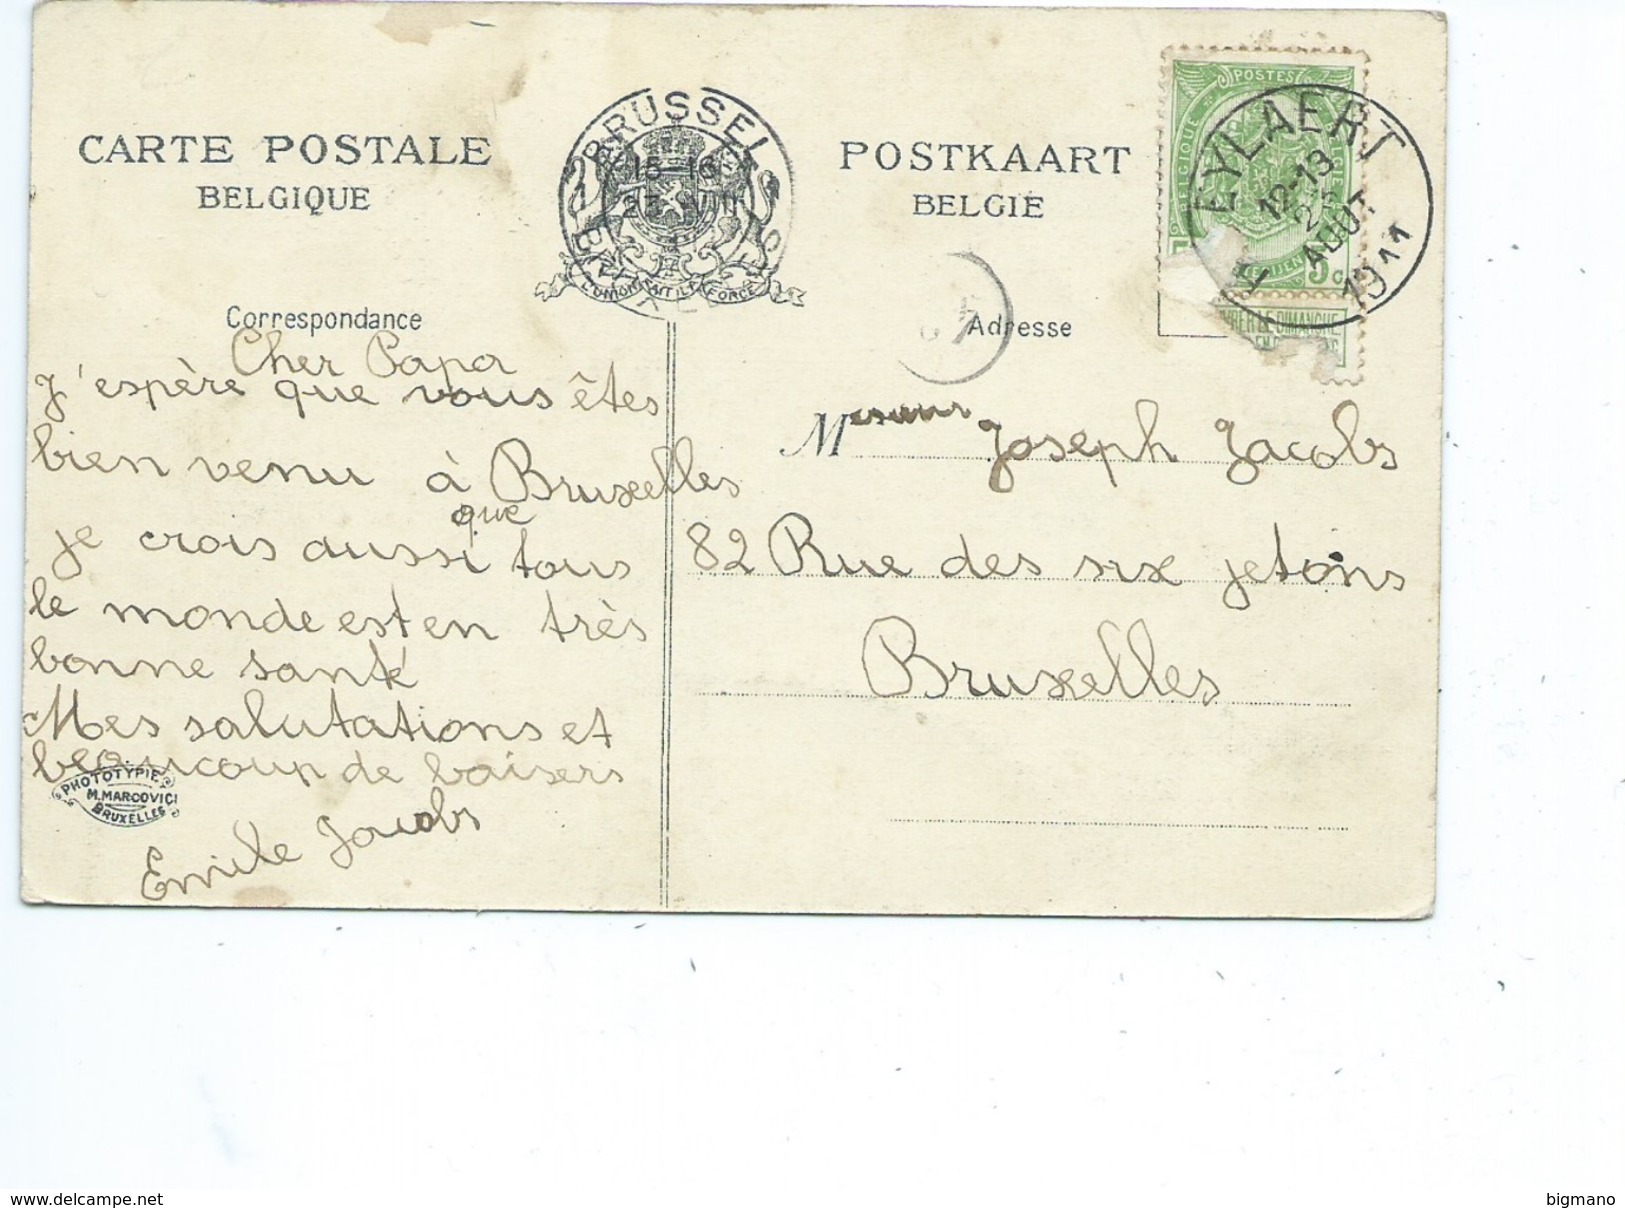 CARTE POSTALE
BELGIQUE
POSTKAART
BELGIË
BRUSSEL
15-16
L'UNION FAIT LA FORCE
POSTES
BELGIQUE
5 c
EYLAERT
12-13
AOUT
1911
Correspondance
Adresse
Cher Papa
J'espère que vous êtes
bien venu à Bruxelles
que
je crois aussi tous
le monde est en très
bonne santé
Mes salutations et
beaucoup de baisers
Emile Jacobs
PHOTOTYPIE
M. MARCOVICI
BRUXELLES
Joseph Jacobs
82 Rue des six jetons
Bruxelles
www.delcampe.net
bigmano